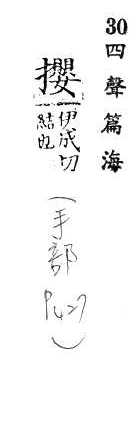 30四聲篇海
攖
一伊成切
結也
(手部
P427)